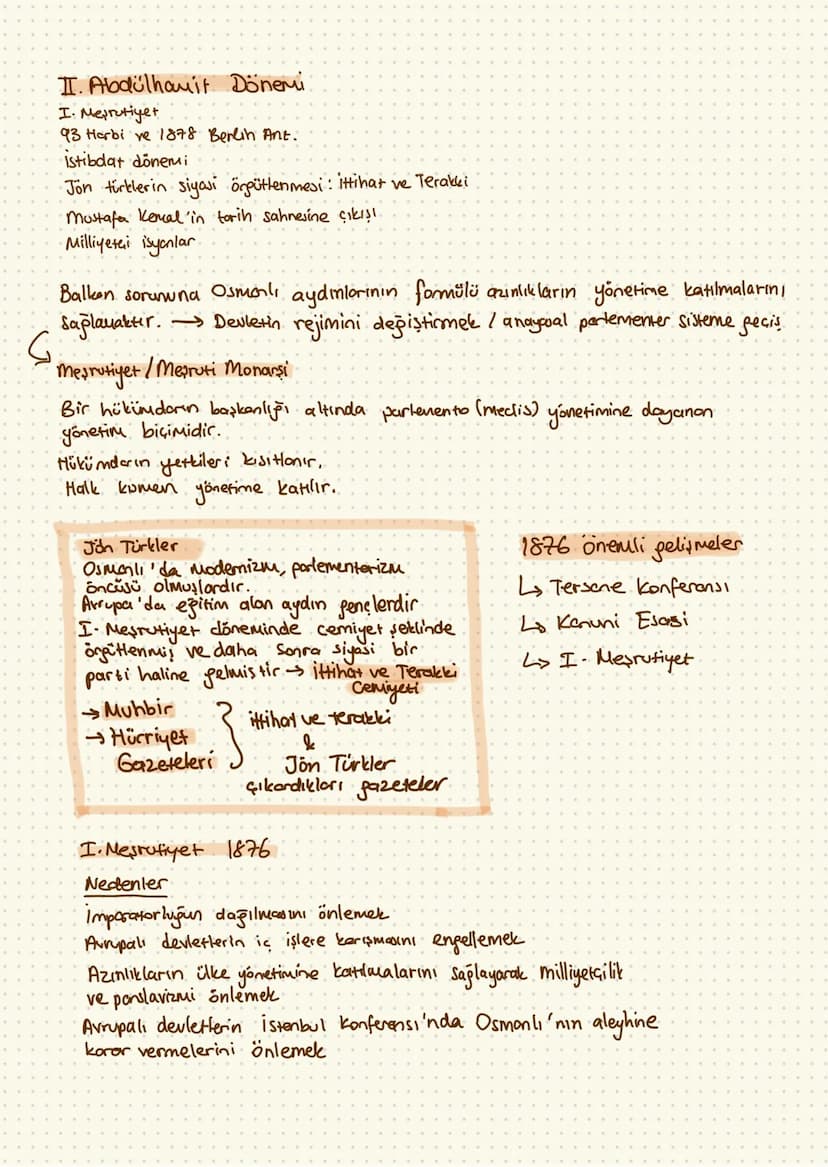 II. Abdülhamit Dönemi
I. Meşrutiyet
93 Harbi ve 1878 Berlin Ant.
İstibdat dönemi
Jön türklerin siyasi örgütlenmesi: İttihat ve Terakki
Mustafa Kemal'in tarih sahnesine çıkışı
Milliyetçi isyanlar
Balkan sorununa Osmanlı aydınlarının formülü azınlıkların yönetime katılmalarını
sağlamaktır. → Devletin rejimini değiştirmek / anayasal parlementer sisteme geçiş
Meşrutiyet / Meşruti Monarşi
Bir hükümdarın başkanlığı altında parlemento (meclis) yönetimine dayanan
yönetim biçimidir.
Hükümdarın yetkileri kısıtlanır.
Halk kısmen yönetime katılır.
Jön Türkler
Osmanlı'da modernizm, parlementerizm
öncüsü olmuşlardır.
Avrupa'da eğitim alan aydın gençlerdir
I. Meşrutiyet döneminde cemiyet şeklinde
örgütlenmiş ve daha sonra siyasi bir
parti haline gelmiştir → İttihat ve Terakki
Cemiyeti
→ Muhbir
→ Hürriyet
Gazeteleri
ittihat ve terakki
&
Jön Türkler
çıkardıkları gazeteler
1876 önemli gelişmeler
↳ Tersane Konferansı
↳ Kanuni Esasi
↳ I. Meşrutiyet
I. Meşrutiyet 1876
Nedenler
İmparatorluğun dağılmasını önlemek
Avrupalı devletlerin iç işlere karışmasını engellemek
Azınlıkların ülke yönetimine katılmalarını sağlayarak milliyetçilik
ve panslavizmi önlemek
Avrupalı devletlerin İstanbul Konferansı'nda Osmanlı'nın aleyhine
karar vermelerini önlemek